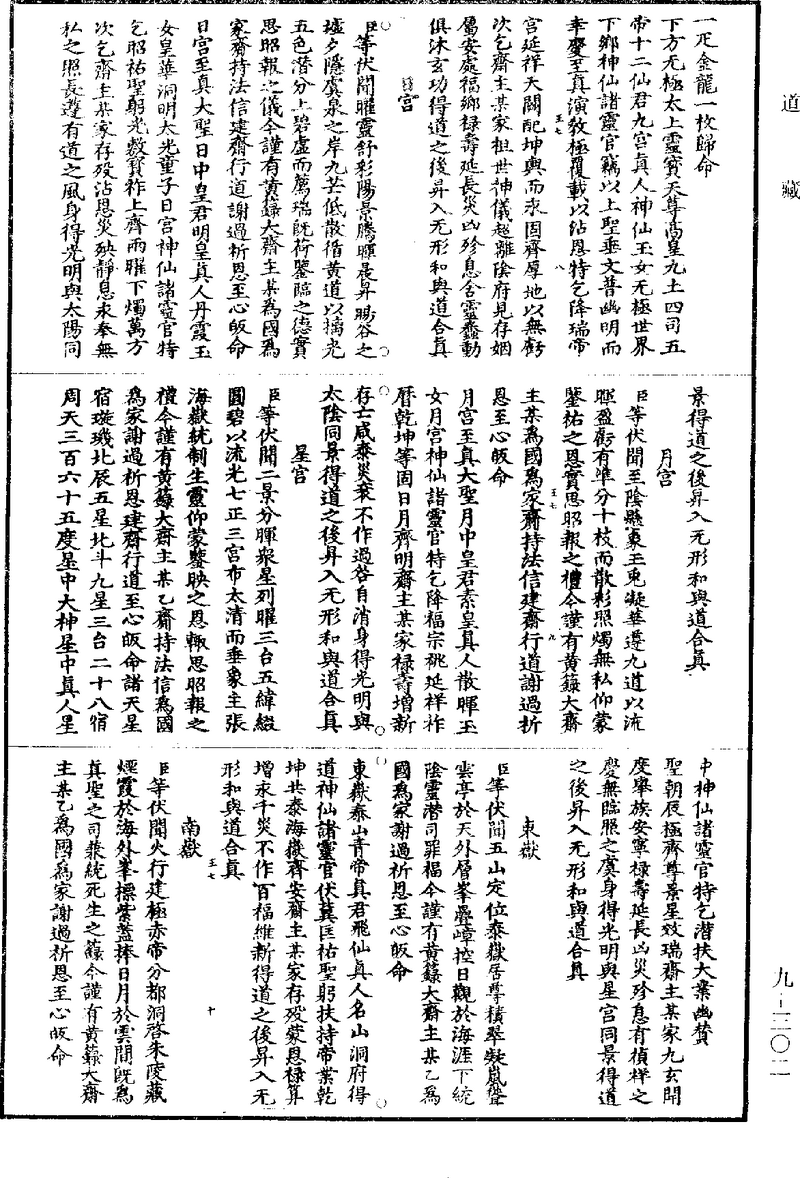 道藏
九－三〇二
一疋金龍一枚歸命
下方無極太上靈寶天尊高皇九土四司五
帝十二仙君九宮真人神仙玉女無極世界
下鄉神仙諸靈官竊以上聖垂文普幽明而
幸慶至真演教極覆載以沾恩特乞降瑞帝
宮延祥天闕配坤輿而永固齊厚地以無虧
次乞齋主某家祖世神儀超離陰府見存姻
屬安處福鄉祿壽延長災凶殄息含靈蠢動
俱沐玄功得道之後昇入无形和與道合真
日宮
臣等伏聞曜靈舒彩陽景騰暉晨昇暘谷之
墟夕隱虞泉之岸九芒低散循黃道以摛光
五色潛分上碧虛而薦瑞既荷鑒臨之德實
思昭報之儀今謹有黃籙大齋主某為國為
家齋持法信建齋行道謝過祈恩至心皈命
日宮至真大聖日中皇君明皇真人丹霞玉
女皇華洞明太光童子日宮神仙諸靈官特
乞昭祐聖躬光敷寶祚上齊兩曜下燭萬方
次乞齋主某家存歿沾恩災殃靜息永奉無
私之照長遵有道之風身得光明與太陽同
景得道之後昇入无形和與道合真
月宮
臣等伏聞至陰懸象玉兔凝華遵九道以流
暉盈虧有準分十枝而散彩照燭無私仰蒙
鑒祐之恩實思昭報之禮今謹有黃籙大齋
主某為國為家齋持法信建齋行道謝過祈
恩至心皈命
月宮至真大聖月中皇君素皇真人散暉玉
女月宮神仙諸靈官特乞降福宗祧延祥祚
曆乾坤等固日月齊明齋主某家祿壽增新
存亡咸泰災衰不作過咎自消身得光明與
太陰同景得道之後昇入无形和與道合真
星宮
臣等伏聞二景分暉眾星列曜三台五緯綴
圓碧以流光七正三宮布太清而垂象主張
海嶽統制生靈仰蒙鑒映之恩輒思昭報之
禮今謹有黃籙大齋主某乙齋持法信為國
為家謝過祈恩建齋行道至心皈命諸天星
宿璇璣北辰五星北斗九星三台二十八宿
周天三百六十五度星中大神星中真人星
中神仙諸靈官特乞潛扶大業幽贊
聖朝辰極齊尊景星效瑞齋主某家九玄開
度舉族安寧祿壽延長凶災殄息有禎祥之
慶無臨照之虞身得光明與星宮同景得道
之後昇入无形和與道合真
東嶽
臣等伏聞五山定位泰嶽居尊積翠凝嵐聳
雲亭於天外層峯疊嶂控日觀於海涯下統
陰靈潛司罪福今謹有黃籙大齋主某乙為
國為家謝過祈恩至心皈命
東嶽泰山青帝真君飛仙真人名山洞府得
道神仙諸靈官伏冀匡祐聖躬扶持帝業乾
坤共泰海嶽齊安齋主某家存歿蒙恩祿算
增永千災不作百福維新得道之後昇入无
形和與道合真
南嶽
臣等伏聞火行建極赤帝分都洞啓朱陵藏
煙霞於海外峯標紫蓋捧日月於雲間既為
真聖之司兼統死生之籙今謹有黃籙大齋
主某乙為國為家謝過祈恩至心皈命